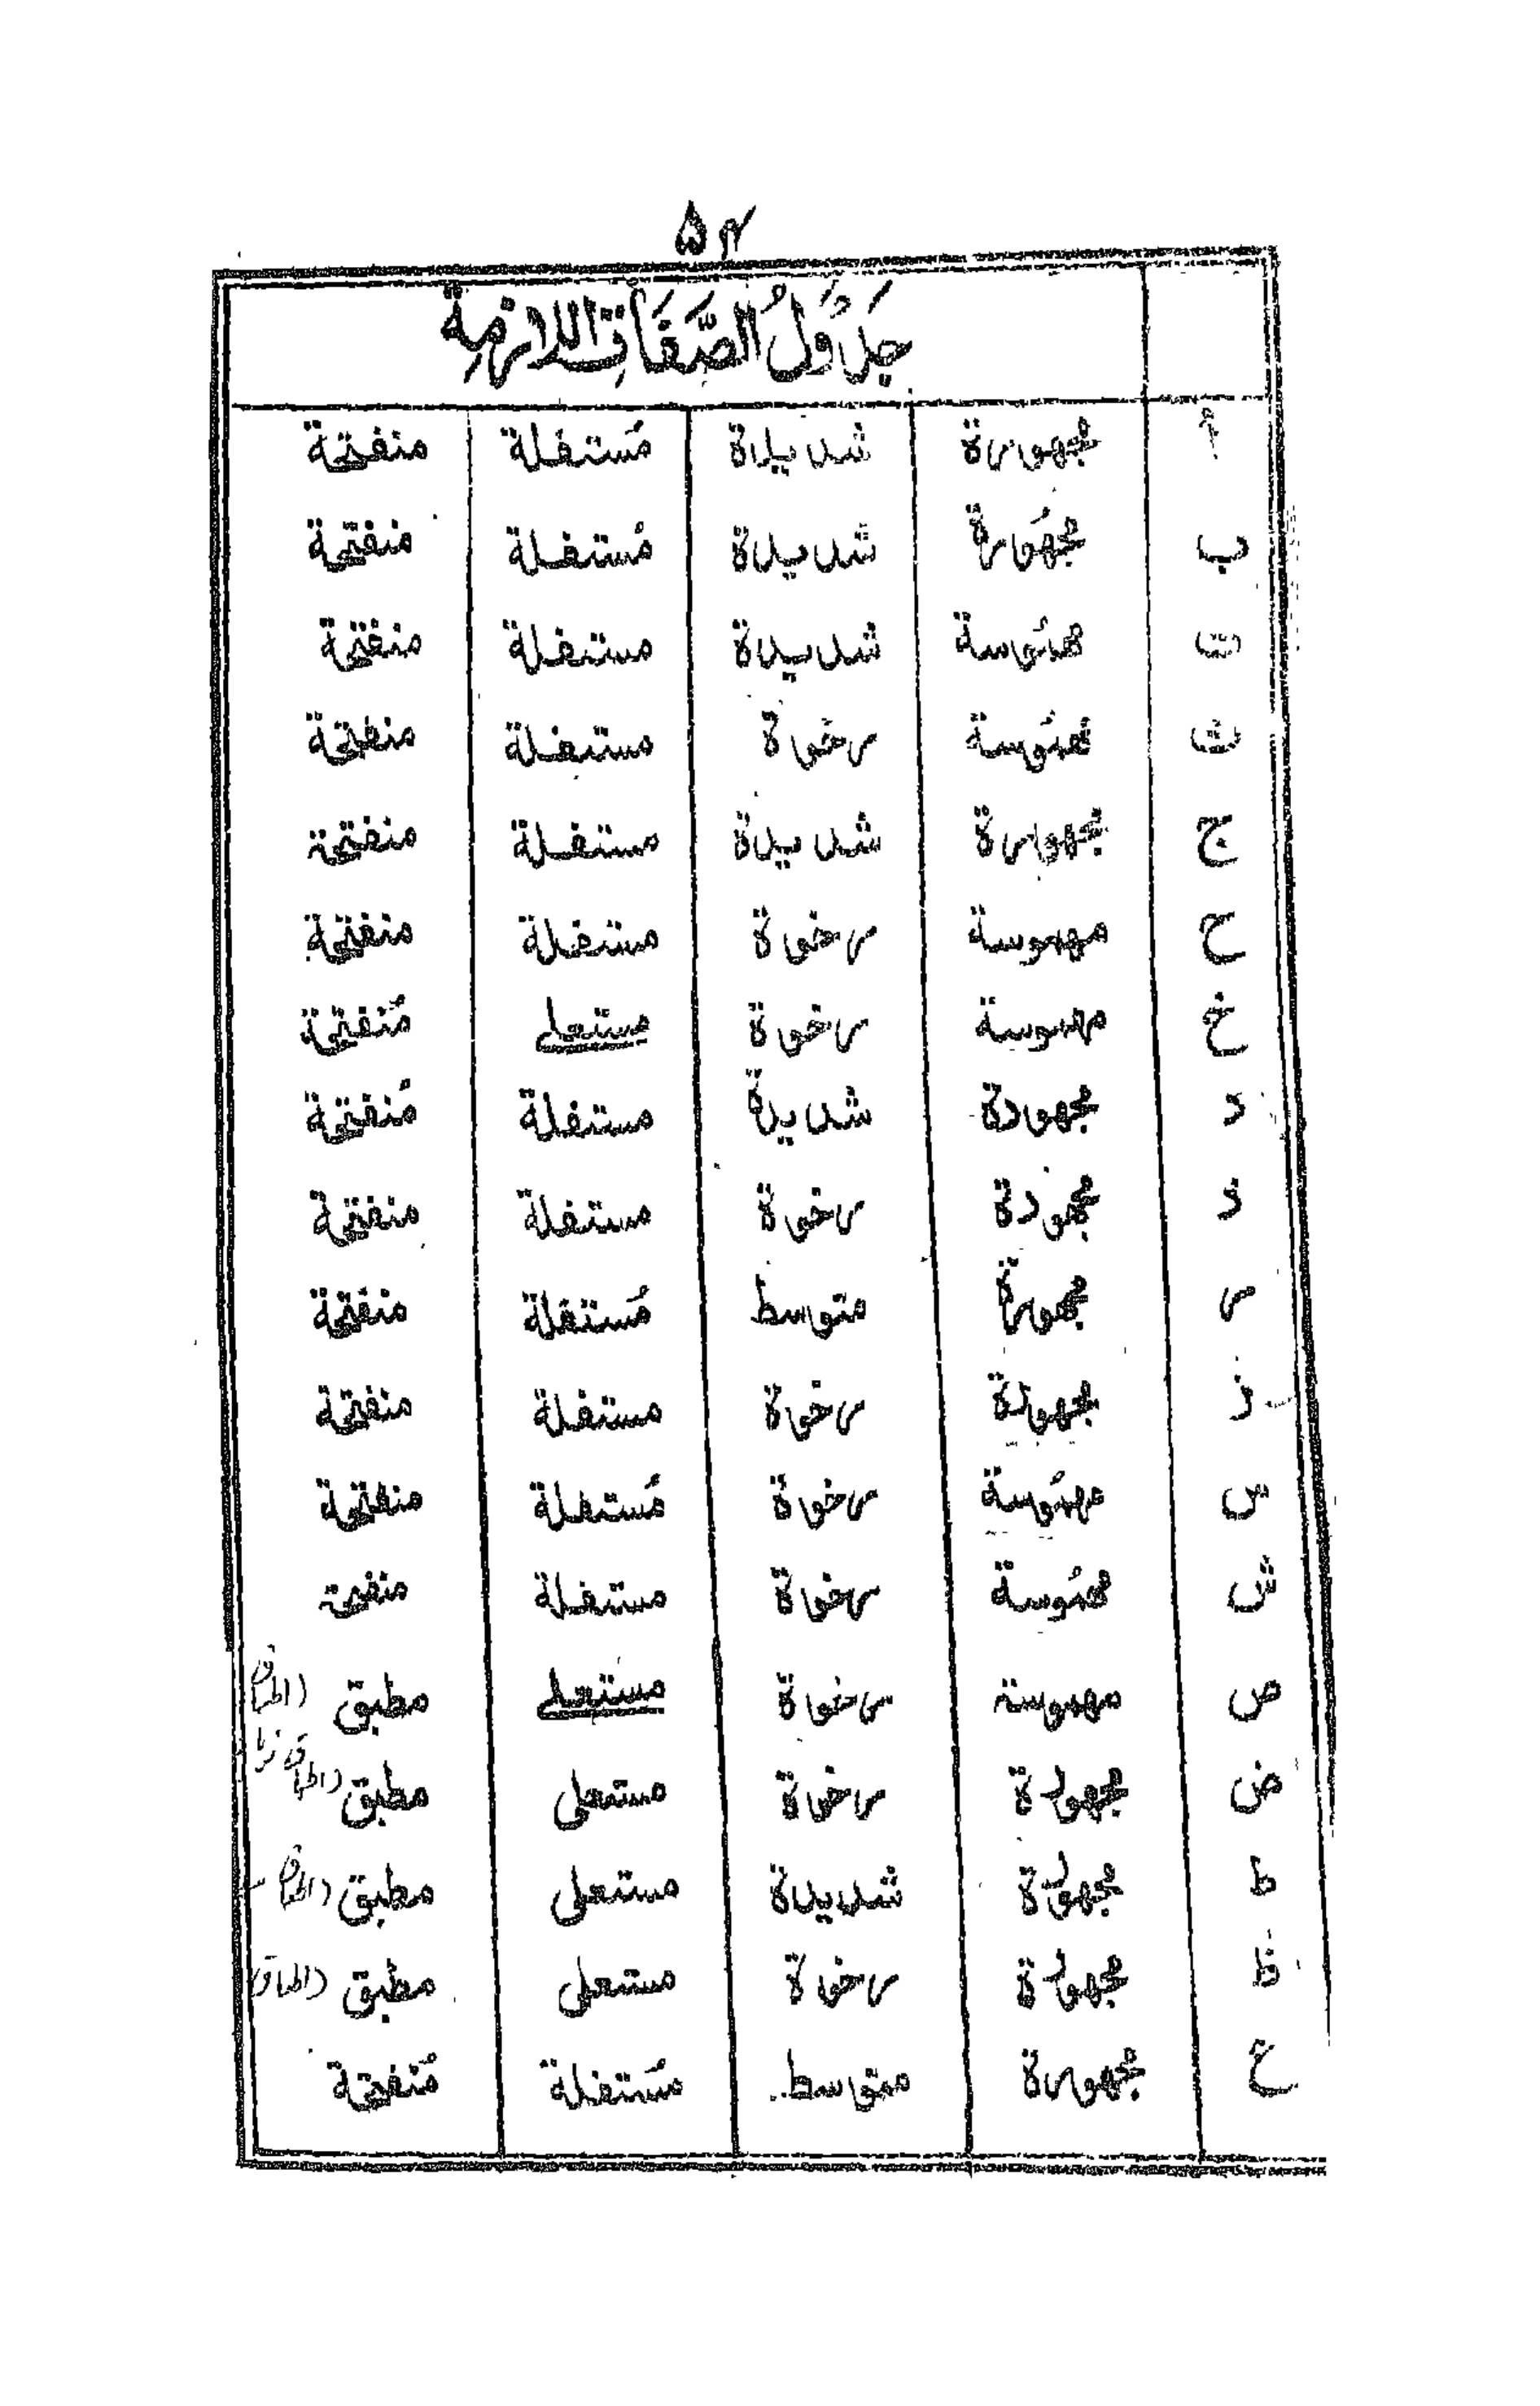 ۵۴
جَدْوَلُ الصَّفَاتِ اللازمةِ
أ مجهورة شديدة مُستفلة منفتحة
ب مجهُورة شديدة مُستفلة منفتحة
ت مهمُوسة شديدة مستفلة منفتحة
ث مهمُوسة رخوة مستفلة منفتحة
ج مجهورة شديدة مستفلة منفتحة
ح مهموسة رخوة مستفلة منفتحة
خ مهموسة رخوة مستعلى مُنفتحة
د مجهورة شديدة مستفلة مُنفتحة
ذ مجهورة رخوة مستفلة منفتحة
ر مجهورة متوسط مُستفلة منفتحة
ز مجهورة رخوة مستفلة منفتحة
س مهمُوسة رخوة مُستفلة منفتحة
ش مهمُوسة رخوة مستفلة منفتحة
ص مهموسة رخوة مستعلى مطبق
ض مجهورة رخوة مستعلى مطبق
ط مجهورة شديدة مستعلى مطبق
ظ مجهورة رخوة مستعلى مطبق
ع مجهورة متوسط مُستفلة مُنفتحة